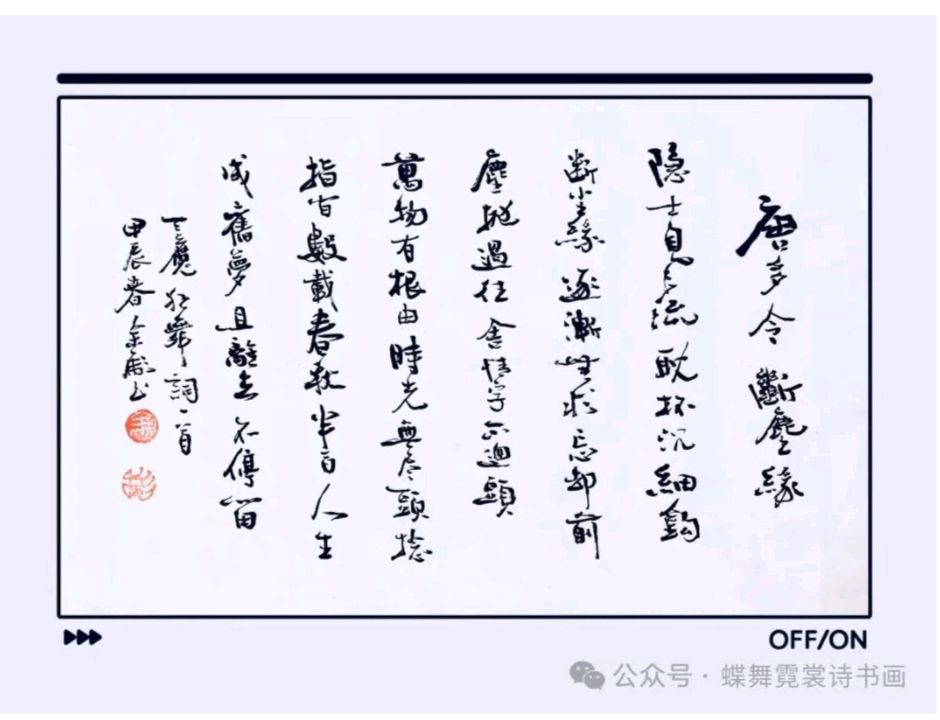 唐多令 斷塵緣
隐士自風流 耽杯沉細鈎
斷尘緣 逐漸無求 忘却前
塵拋過往 舍情字 不迴頭
萬物有根由 時光無尽頭 捻
指间數載春秋 半百人生
成舊夢 且離去 不停留
天魔狂舞詞一首
甲辰春余书
OFF/ON
公众号 · 蝶舞霓裳诗书画